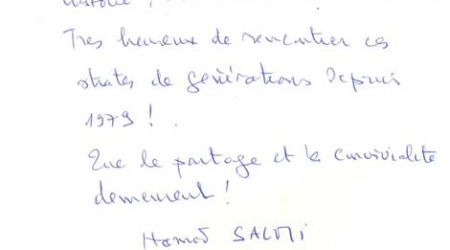 Tres heureux de rencontrer ces
strates de générations Depuis
1979 !
Que le partage et la convivialité
demeurent !
Hamid SALMI